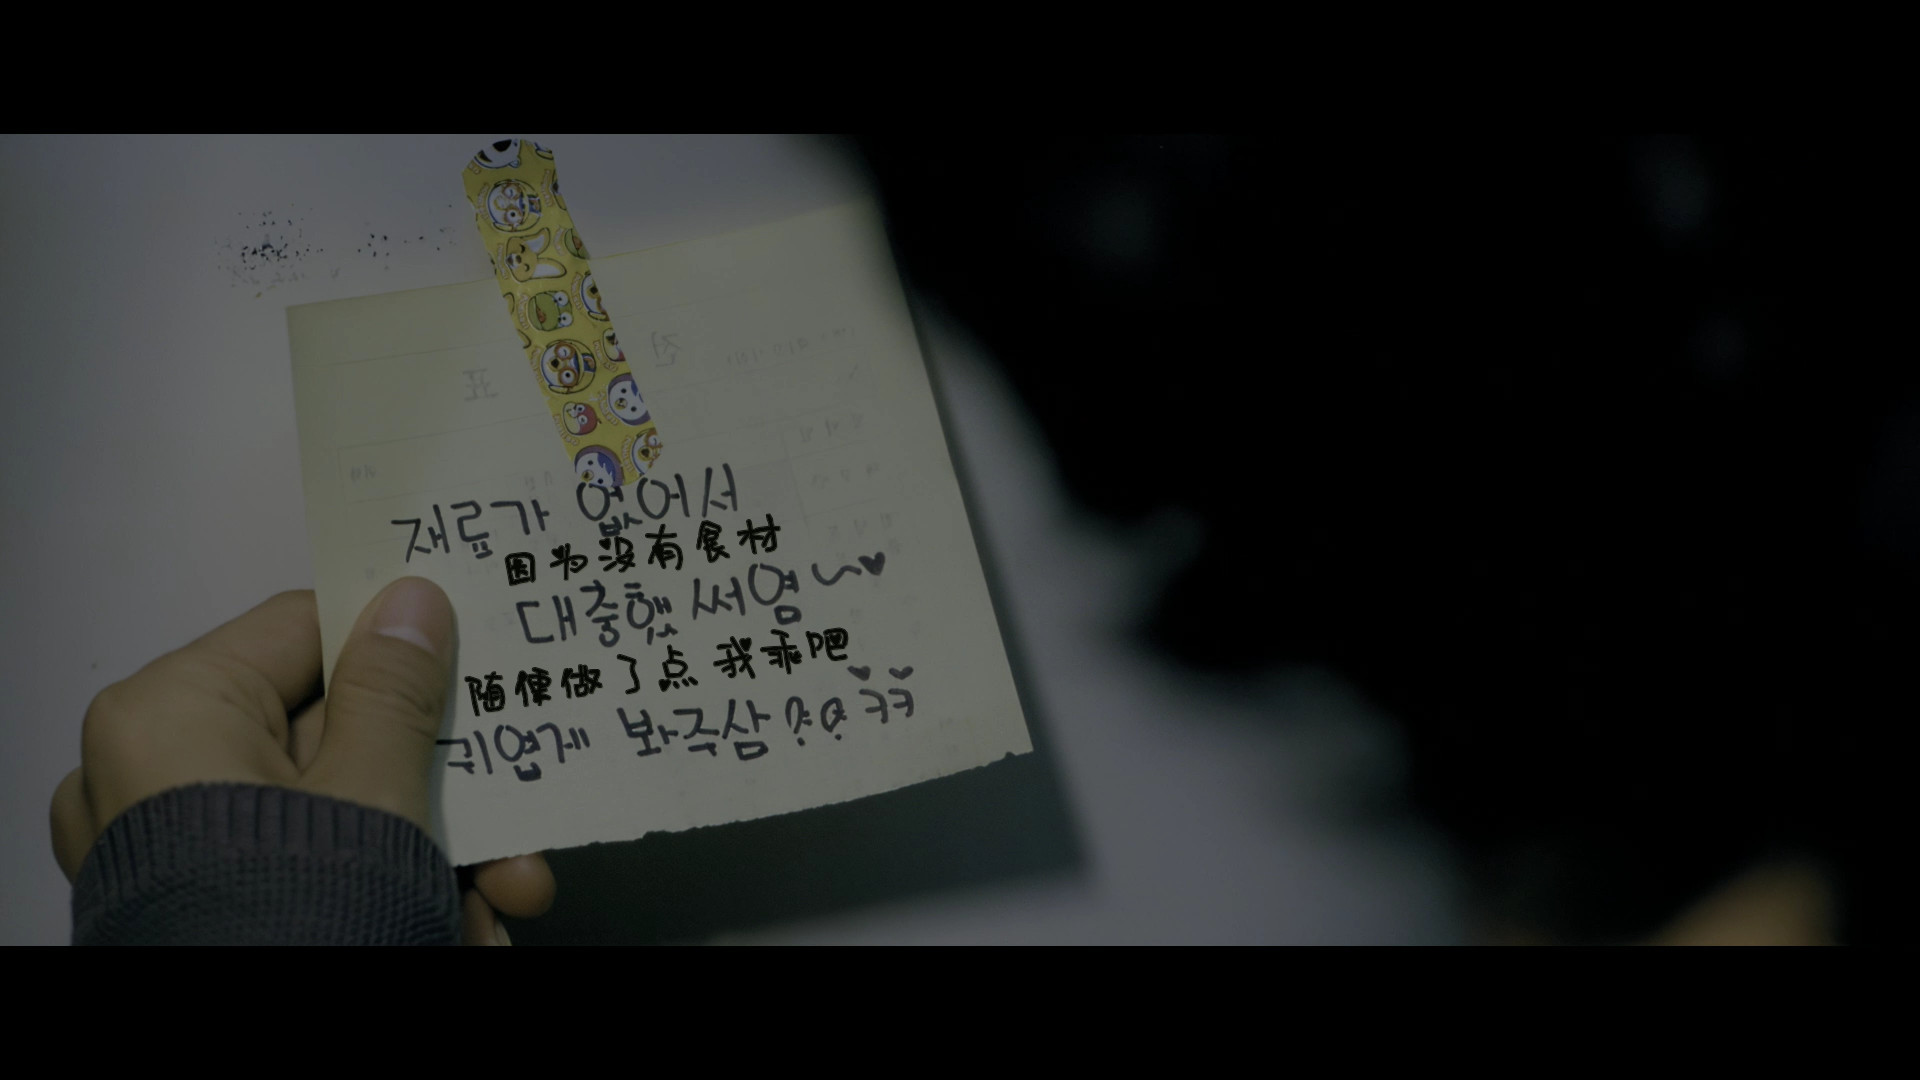 재료가 없어서
因为没有食材
대충했써염~♥
随便做了点 我乖吧
귀엽게 봐주삼 ?.? ㅋㅋ